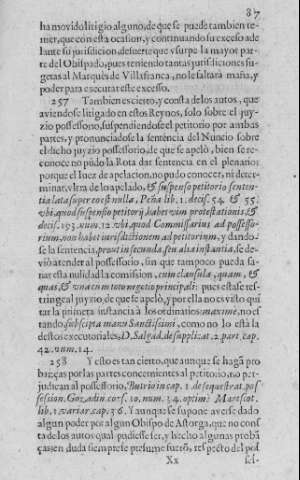 87
ha movido litigio alguno, de que se puede tambien te-
mer, que con esta ocasion, y continuando su excesso ade
lante su jurisdicion, de suerte que vsurpe la mayor par
te del Obispado, pues teniendo tantas jurisdiciones su-
getas al Marquès de Villafranca, no le faltarà maña, y
poder para executar este excesso.
257 Tambien es cierto, y consta de los autos, que
aviendose litigado en estos Reynos, solo sobre el juy-
zio possessorio, suspendiendose el petitorio por ambas
partes, y pronunciadose la sentencia del Nuncio sobre
el dicho juyzio possessorio, de que se apelò, bien se re-
conoce no pudo la Rota dar sentencia en el plenario:
porque el Iuez de apelacion, no pudo conocer, ni deter-
minar, vltra de lo apelado, & suspenso petitorio senten-
tia lata super eo est nulla, Peña lib. 1. decis. 54. & 55.
vbi quod suspensio petitorij habet vim protestationis, &
decis. 193. num. 12. vbi quod Commissarius ad possesso-
rium, non habet iurisdictionem ad petitorium, y dando-
se la sentencia, prout in secunda, seu alta instantia, se de-
viò atender al possessorio, sin que tampoco pueda sa-
nar esta nulidad la comission, cum clausula, quam, &
quas, & vna cum toto negotio principali: pues esta se res-
tringe al reyno, de que se apelò, y por ella no es visto qui
tar la primera instancia à los ordinarios: maxime, no es
tando, subscripta manu Sanctissimi, como no lo està la
destos executoriales, D. Salgad. de supplicat. 2. part. cap.
42. num. 14.
258 Y esto es tan cierto, que aunque se hagã pro
baças por las partes concernientes al petitorio, no per-
judican al possessorio, Butrio in cap. 1. de sequestrat. pos
session. Gozadin. cons. 10. num. 34. optimè Marescot.
lib. 1. variar. cap. 36. Y aunque se supone averse dado
algun poder por algun Obispo de Astorga, que no cons
ta de los autos qual pudiesse ser, y hecho algunas probã
ças en duda siempre se presume fueron, respecto del pos
Xx
ses-